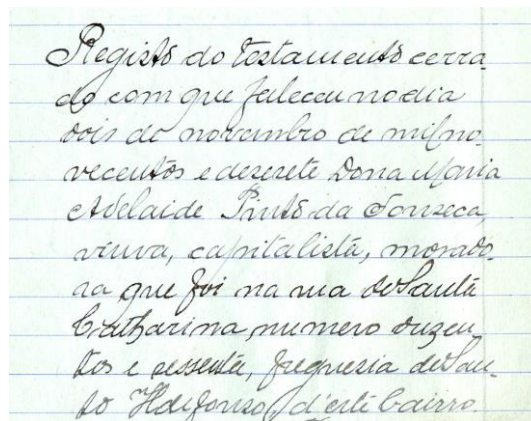 Registo do testamento cerra
do com que faleceu no dia
dois de novembro de mil no
vecentos e dezesete Dona Maria
Adelaide Pinto da Fonseca,
viuva, capitalista, morado
ra que foi na rua de Santa
Catharina, numero duzen
tos e sessenta, freguesia de San
to Ildefonso, d'este bairro.